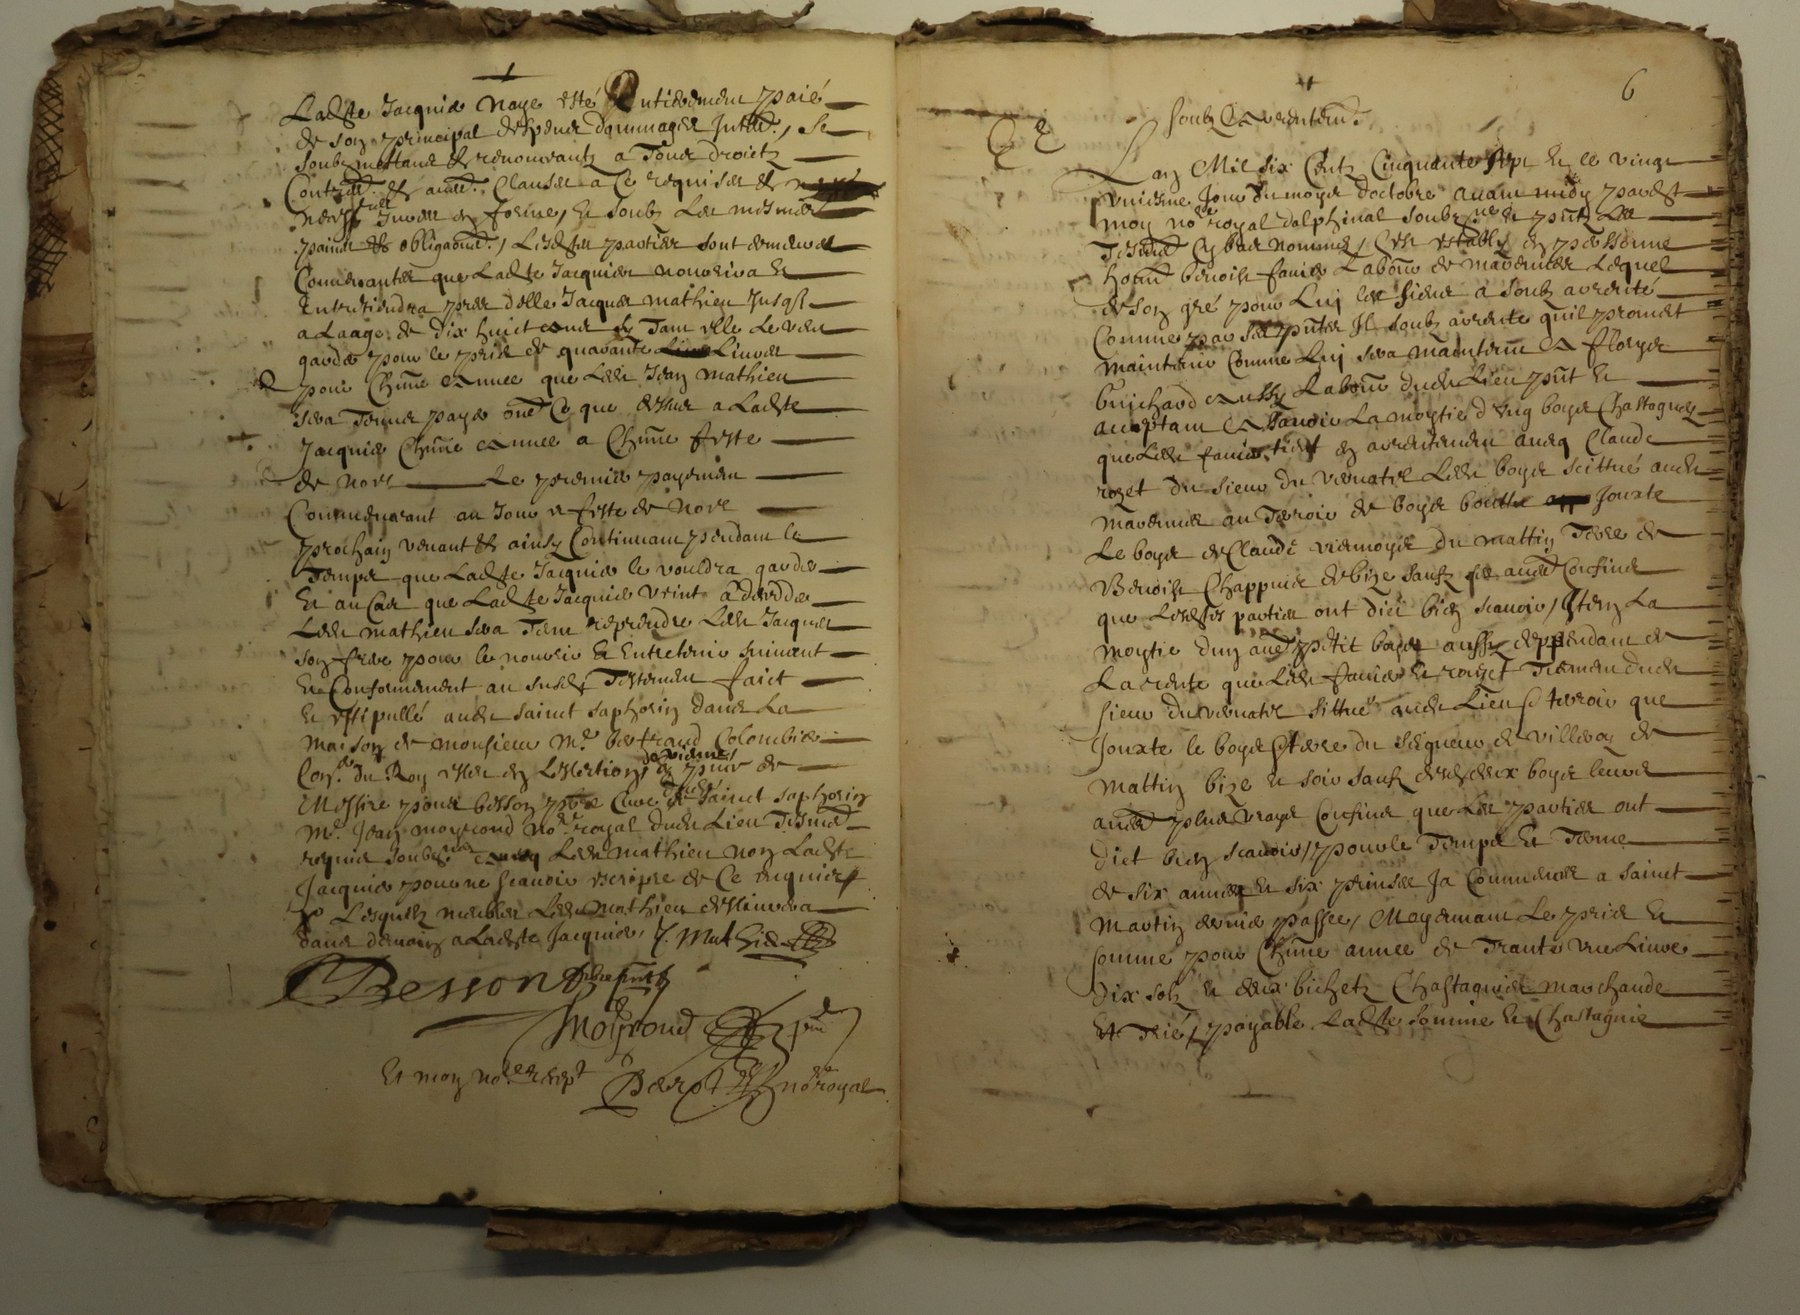 Ladte Jacquier n'aye esté Entierement paié
de son principal despens dommages Inthz, se
soubzmettans & renonceantz a Tous droictz
Contres & aultres Clauses a Ce requises &
en forme, Et soubz les mesmes
paines & obligaons, Lesdtes parties sont demeurees
Convenantes que Ladte Jacquier nourrira Et
Entretiendra pres d'elle Jacques mathieu Jusqs
a Laage de dix huict ans sy Tant elle le veu
garder pour le pris de quarante Livres
pour Chune annee que Ledt Jean Mathieu
sera Tenu payer oultre Ce que dessus a Ladte
Jacquier Chune annee a Chune feste
de Noel Le premier payement
Commenceant au Jour & feste de Noel
prochain venant & ainsy Continuant pendant le
Temps que Ladte Jacquier le vouldra garder
Et au Cas que Ladte Jacquier vint a deceder
Ledt mathieu sera Tenu reprendre Ledt Jacques
son frere pour le nourrir Et Entretenir suivant
Et Conformement au susdt Testament faict
Et stipullé audt sainct saphorin dans La
maison de monsieur Me bertrand Colombier
Conser du Roy esleu en L'eslection de vienne en pnce de
Messire pons besson pbre Curé dudt sainct saphorin
Me Jean moyroud nore royal dudt Lieu Tesmoins
requis soubznes avecq Ledt mathieu non Ladte
Jacquier pour ne scavoir escripre de Ce enquise
Lesquelz meubles Ledt mathieu deslivrera
dans demain a Ladte Jacquier, J. Mathieu
CBesson pbre pnt
Moyroud pnt
Et moy nore recept Perrot nore royal
6
soubz arrentemt
Lan Mil six Centz Cinquante sept Et le vingt
uniesme Jour du moys d'octobre avant midy pardt
moy nore royal dalphinal soubzne Et pntz Les
Tesmoins Cy bas nommes, C'est estably en personne
honn benoist favier Labour de mavernes Lequel
de son gré pour Luy les siens a soubz arrenté
Comme par Ses pntes Il soubz arrente quil promet
maintenir Comme Luy sera maintenu a fleury
buichard aussy Labour dudt Lieu pnt Et
acceptant a scavoir La moytié d'ung boys Chastagney
que Ledt favier tient en arrentement avecq Claude
rozet du sieur du vernatel Ledt boys scittué audt
mavernes au Terroir de boys boittu Jouxte
Le boys de Claude viermoys du mattin Terre de
Benoist Chappuis de bize sauf ses aultres Confins
que Lesdtes parties ont dict bien scavoir, Item La
moytie d'un aultre petit boys aussy deppendant de
La rente que Ledt favier Et rozet Tiennent dudt
sieur du vernatel sittué audt Lieu & terroir que
Jouxte le boys & terre du seigneur de villeroy de
mattin bize Et soir sauf desdt deux boys leurs
aultres plus vrays Confins que Les parties ont
dict bien scavoir, pour le Temps Et Terme
de six annees Et six prinses Ja Commences a sainct
Martin dernier passée, Moyennant Le pris Et
somme pour Chune annee de Trante une Livre
dix solz Et deux bichetz Chastagnies marchande
Et Trié, payable Ladte somme Et Chastagnie